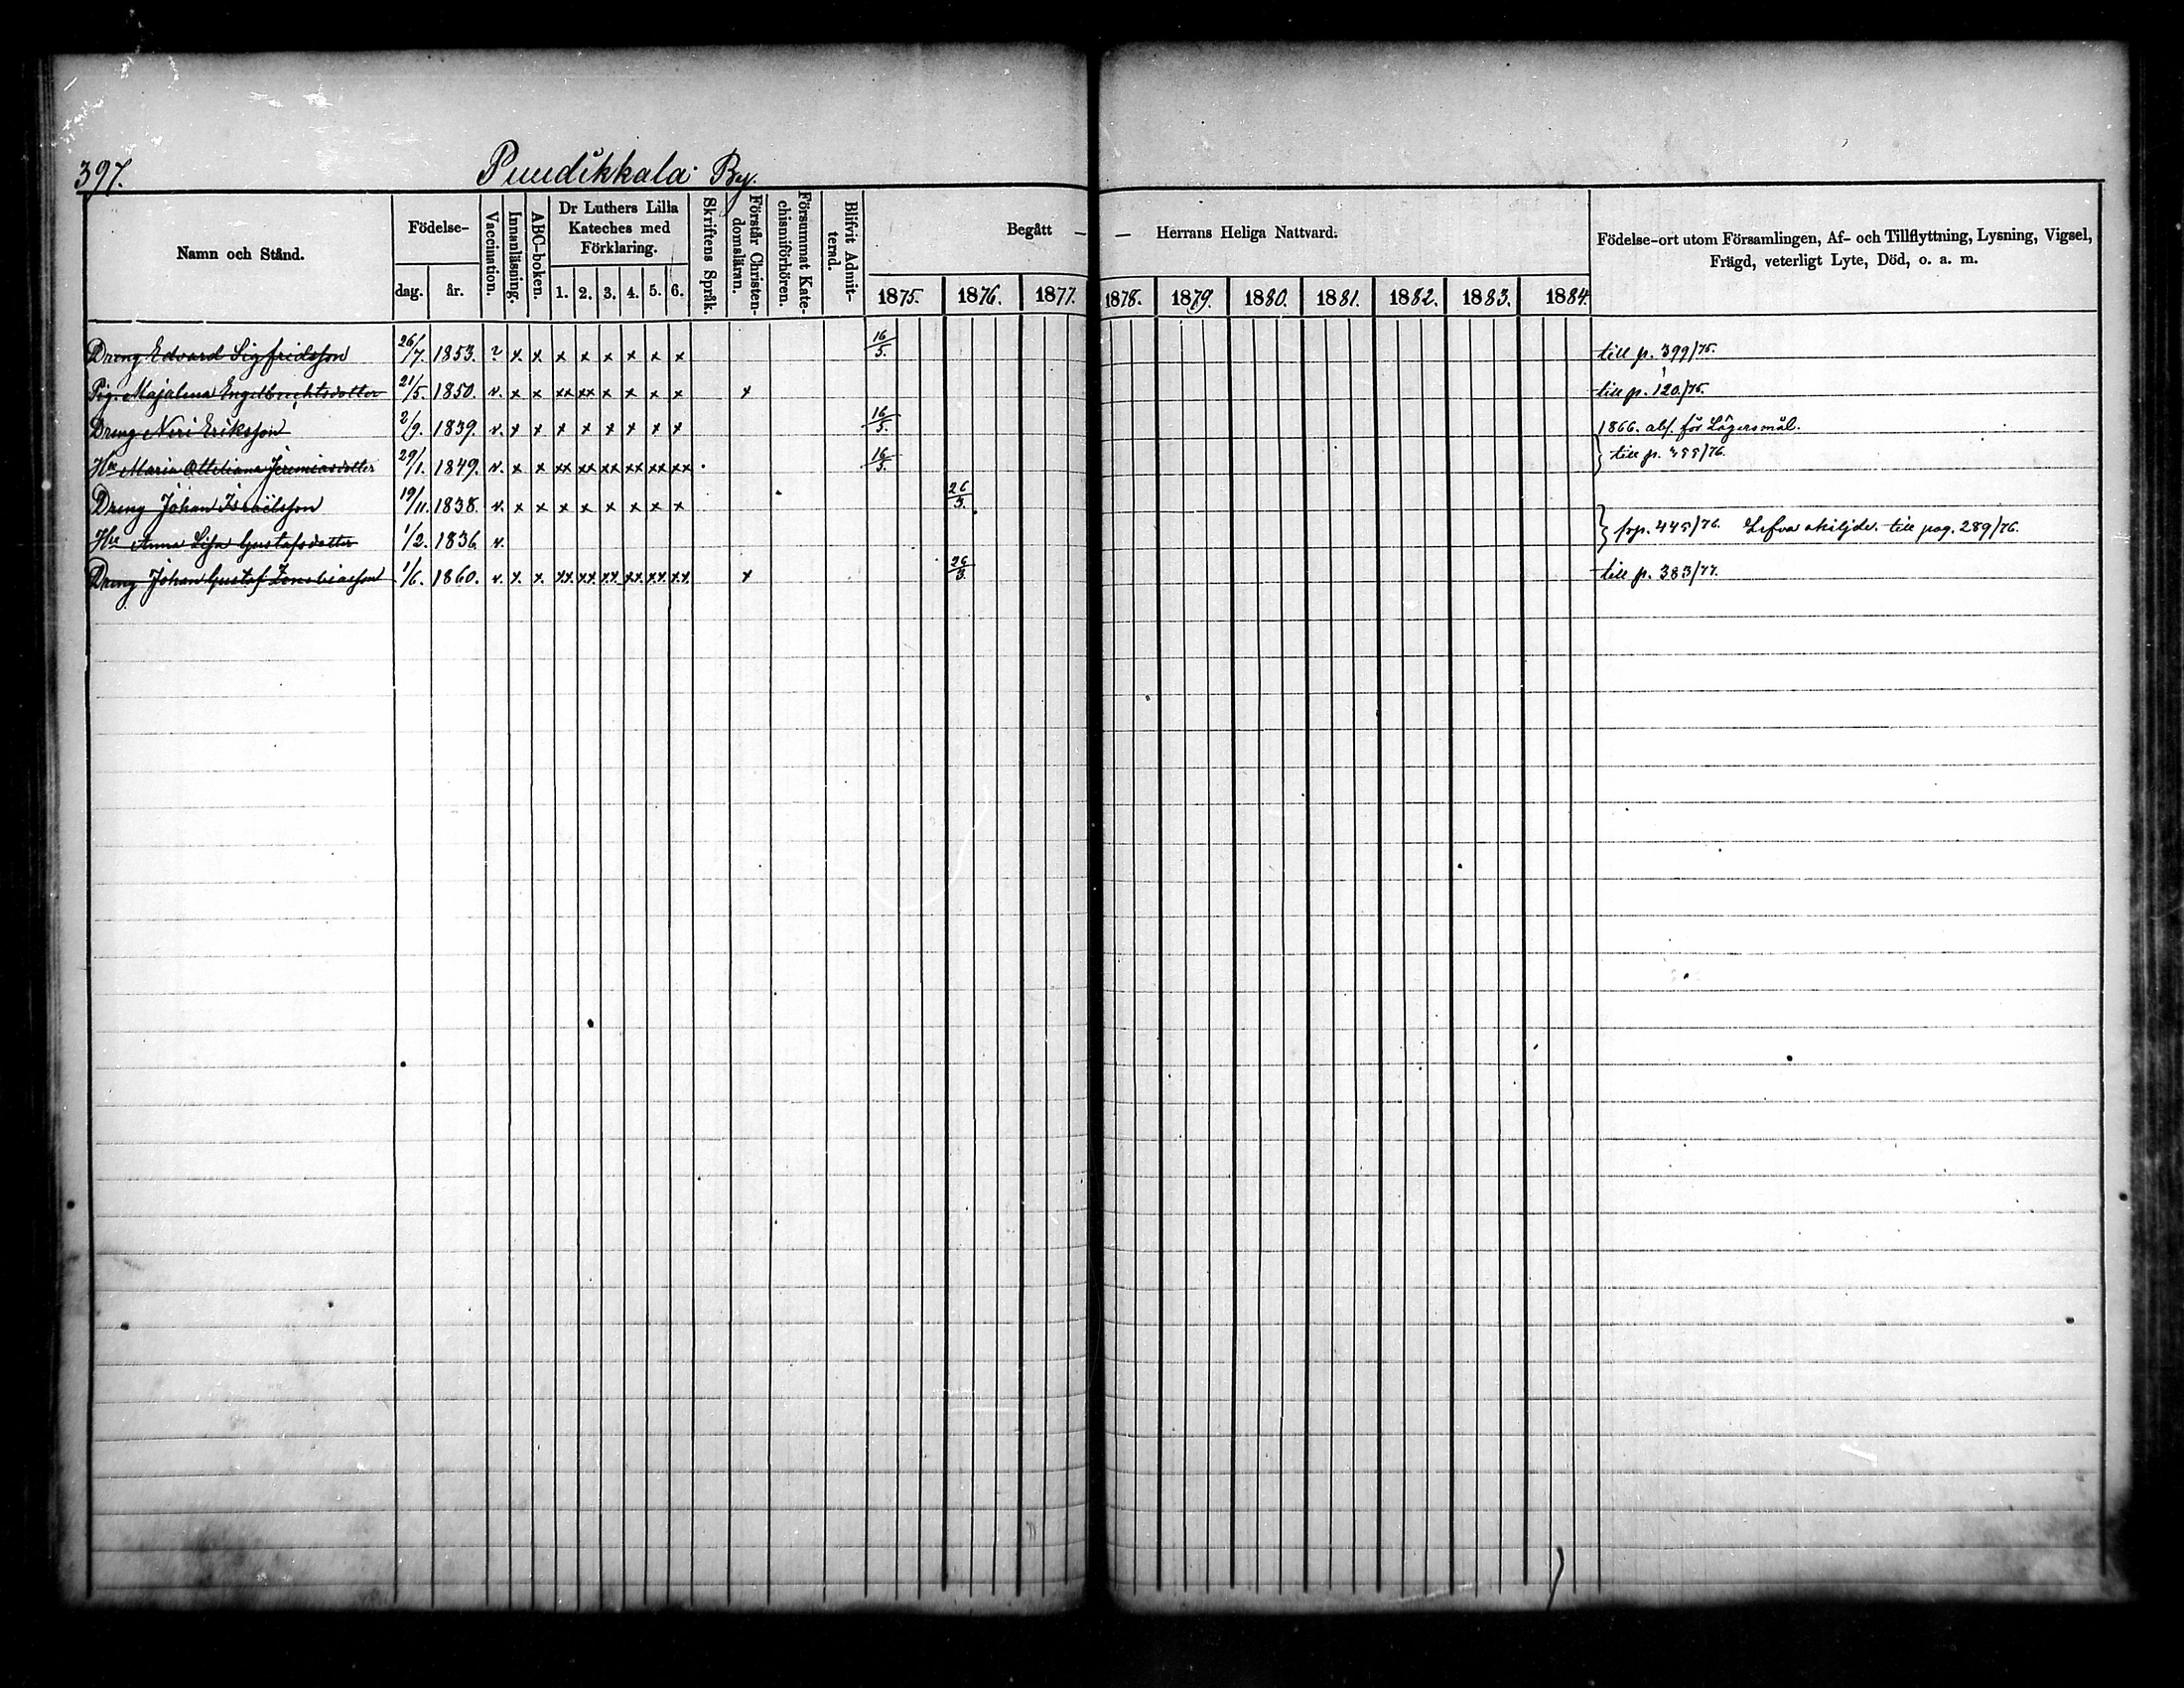 397. Puudikkala By.
Namn och Stånd. Födelse- dag. år. Vaccination. Innanläsning. ABC-boken. Dr Luthers Lilla Kateches med Förklaring. 1. 2. 3. 4. 5. 6. Skriftens Språk. Förstår Christen-domsläran. Försummat Kate-chismiförhören. Blifvit Admit-terad. Begått — — Herrans Heliga Nattvard. 1875. 1876. 1877. 1878. 1879. 1880. 1881. 1882. 1883. 1884. Födelse-ort utom Församlingen, Af- och Tillflyttning, Lysning, Vigsel, Frägd, veterligt Lyte, Död, o. a. m.
Dreng Edvard Sigfridsson 26/7. 1853. ? x x x x x x x x 16/5. till p. 399/75.
Pig. Majalena Engelbrechtsdotter 21/5. 1850. v. x x xx xx x x x x x till p. 120/75.
Dreng Neri Eriksson 2/9. 1839. v. x x x x x x x x 16/5. 1866. abs. för Lägersmål.
Hu Maria Ottiliana Jeremiasdotter 29/1. 1849. v. x x xx xx xx xx xx xx 16/5. till p. 355/76.
Dreng Johan Israelsson 19/11. 1838. v. x x x x x x x x 26/3.
Hu Anna Lisa Gustafsdotter 1/2. 1836. v. frp. 445/76. Lefva skiljde. till pag. 289/76.
Dreng Johan Gustaf 1/6. 1860. v. x x xx xx xx xx xx xx x 26/3. till p. 383/77.